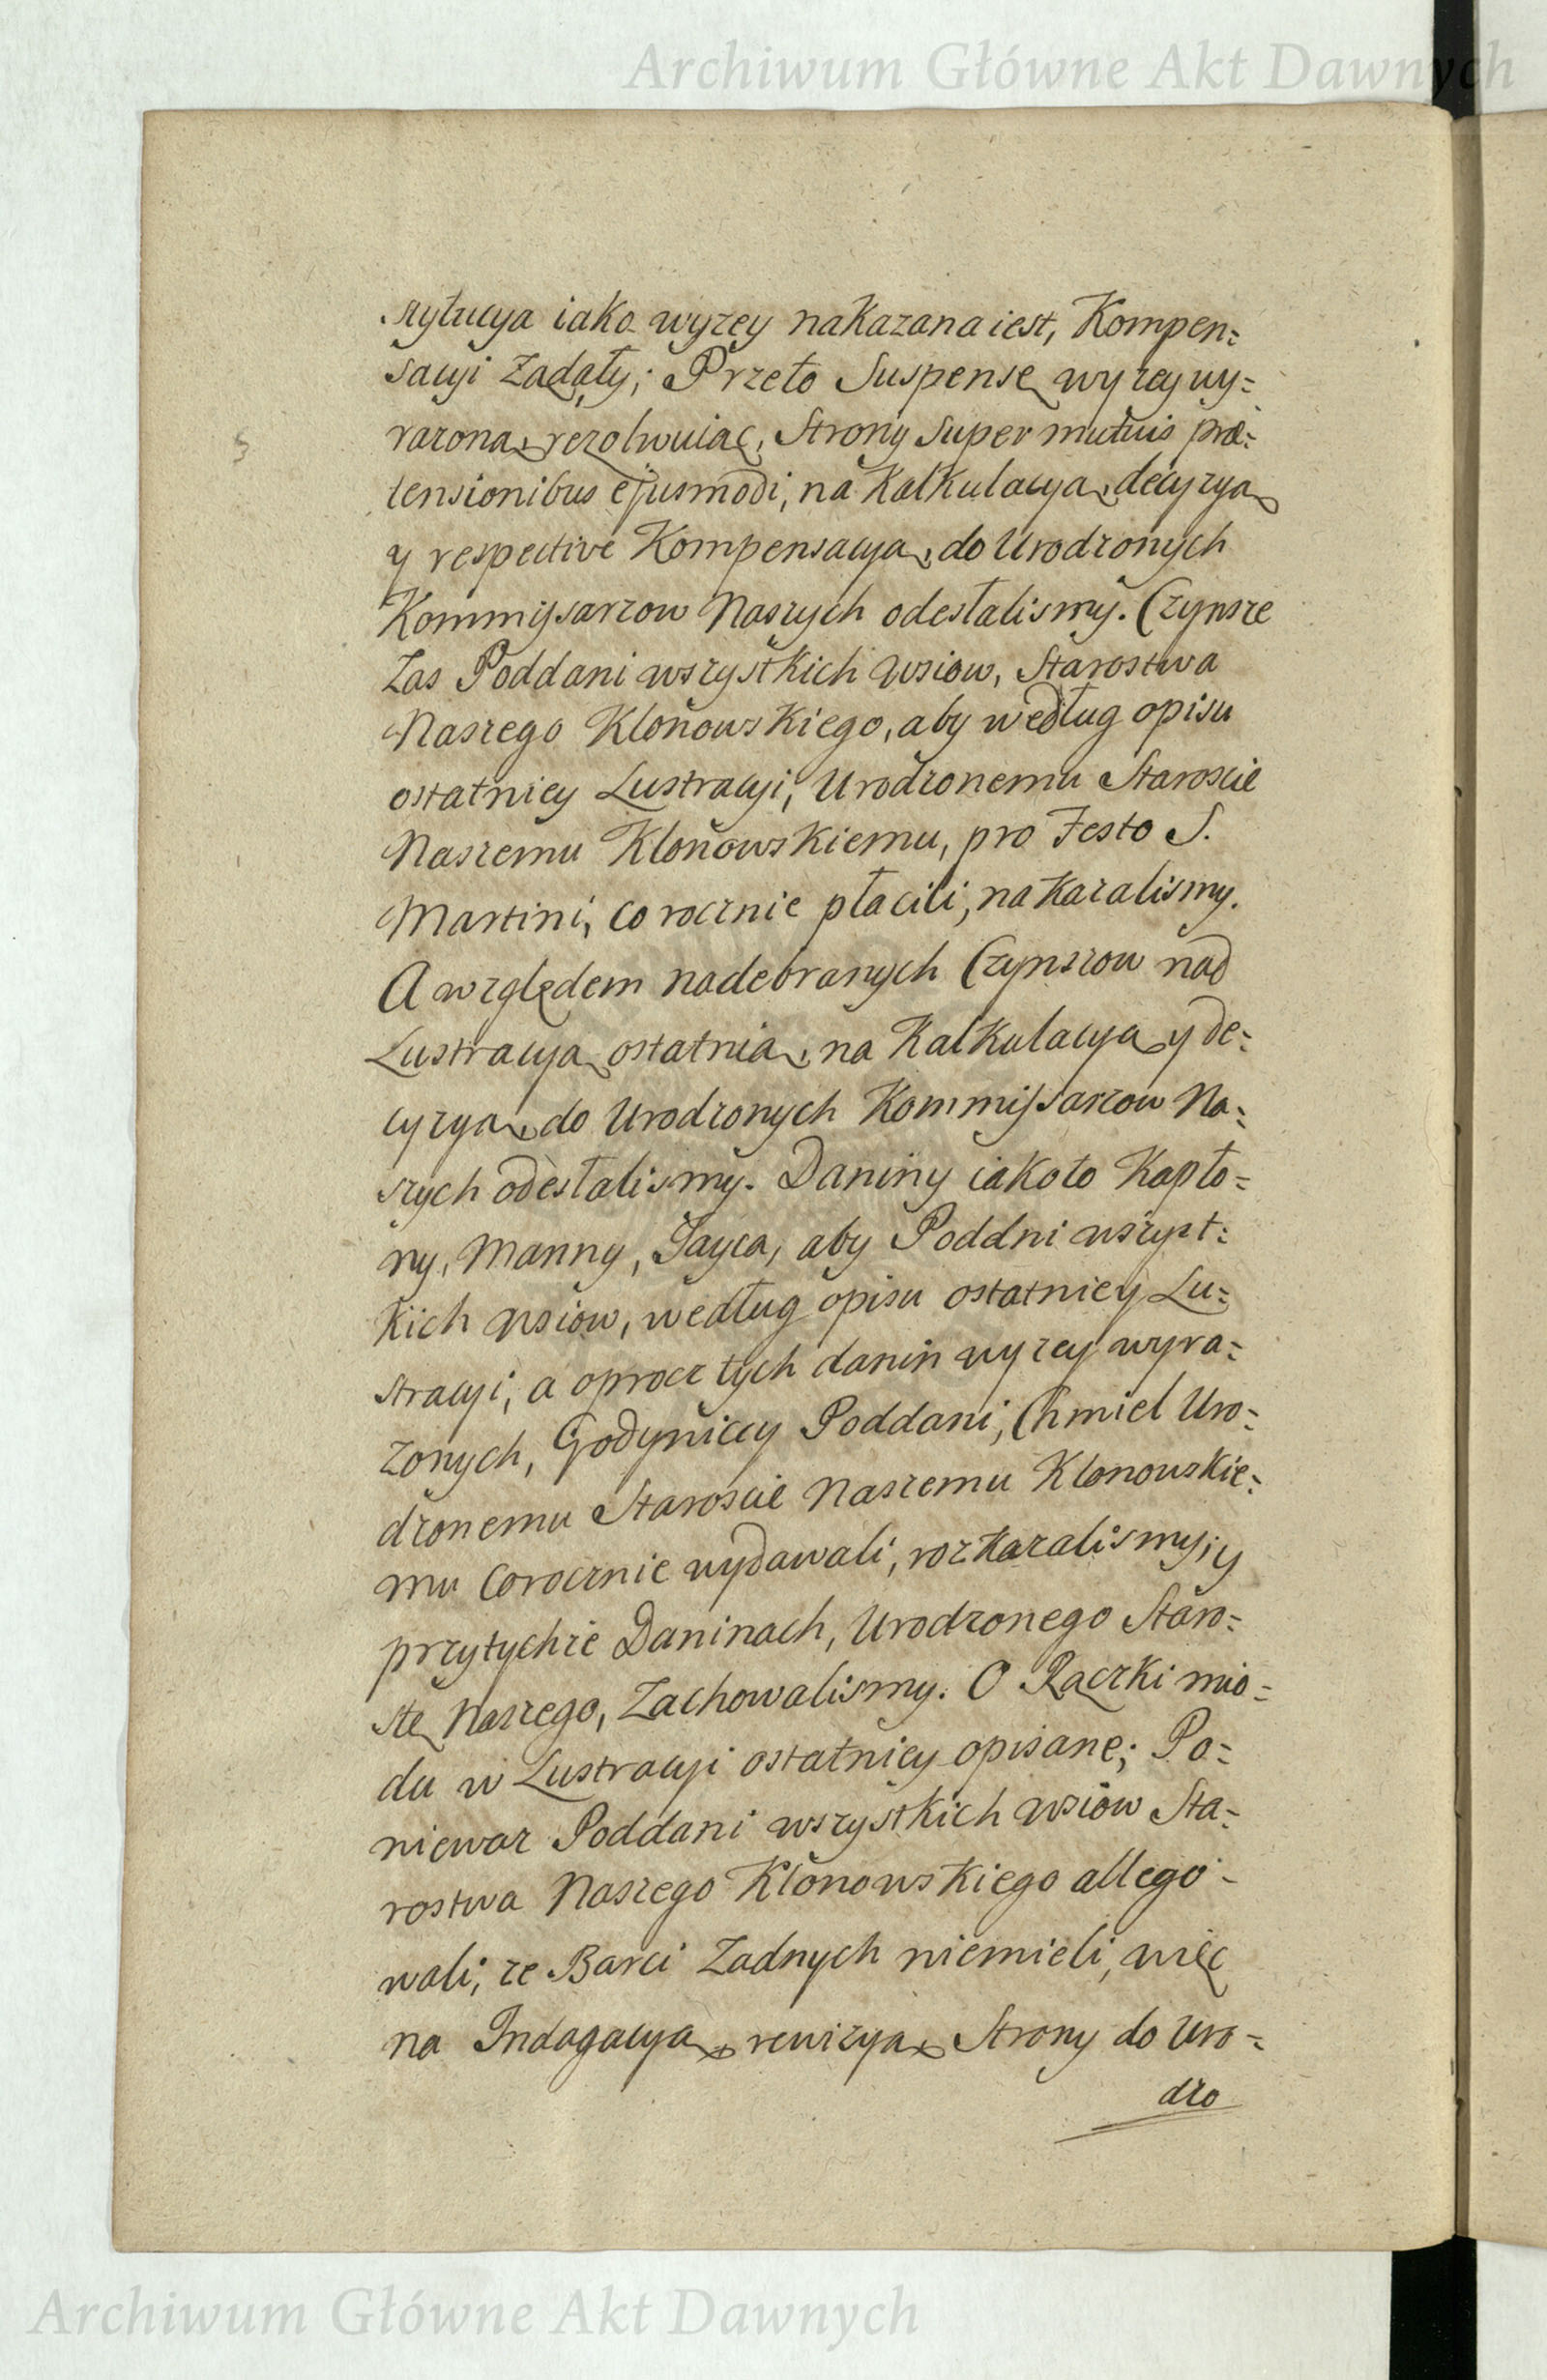 Archiwum Główne Akt Dawnych
stytucya iako wyzey nakazana iest, Kompen=
sacyi Ządały; Przeto Suspensę wyzey wy=
razoną, rezolwuiąc, Strony super mutuis præ=
tensionibus ejusmodi, na Kalkulacyą, decyzyą
y respective Kompensacyą, do Urodzonych
Kommissarzow Naszych odesłalismy. Czynsze
Zas Poddani wszystkich wsiow, Starostwa
Naszego Klonowskiego, aby według opisu
ostatniey Lustracyi, Urodzonemu Staroscie
Naszemu Klonowskiemu, pro Festo S.
Martini, corocznie płacili, nakazalismy.
A względem nadebranych Czynszow nad
Lustracyą ostatnią, na Kalkulacyą y de=
cyzyą, do Urodzonych Kommissarzow Na=
szych odesłalismy. Daniny iakoto Kapło=
ny, Manny, Jayca, aby Poddni wszyst=
kich wsiow, według opisu ostatniey Lu=
stracyi, a oprocz tych danin wyzey wyra=
zonych, Godyniccy Poddani, Chmiel Uro=
dzonemu Staroscie Naszemu Klonowskie=
mu corocznie wydawali, rozkazalismy, y
przytychze Daninach, Urodzonego Staro=
stę Naszego, Zachowalismy. O Rączki mio=
du w Lustracyi ostatniey opisane; Po=
niewaz Poddani wszystkich wsiow Sta=
rostwa Naszego Klonowskiego allego=
wali, ze Barci Zadnych niemieli, więc
na Indagacyą, rewizyą, Strony do Uro=
dzo
Archiwum Główne Akt Dawnych